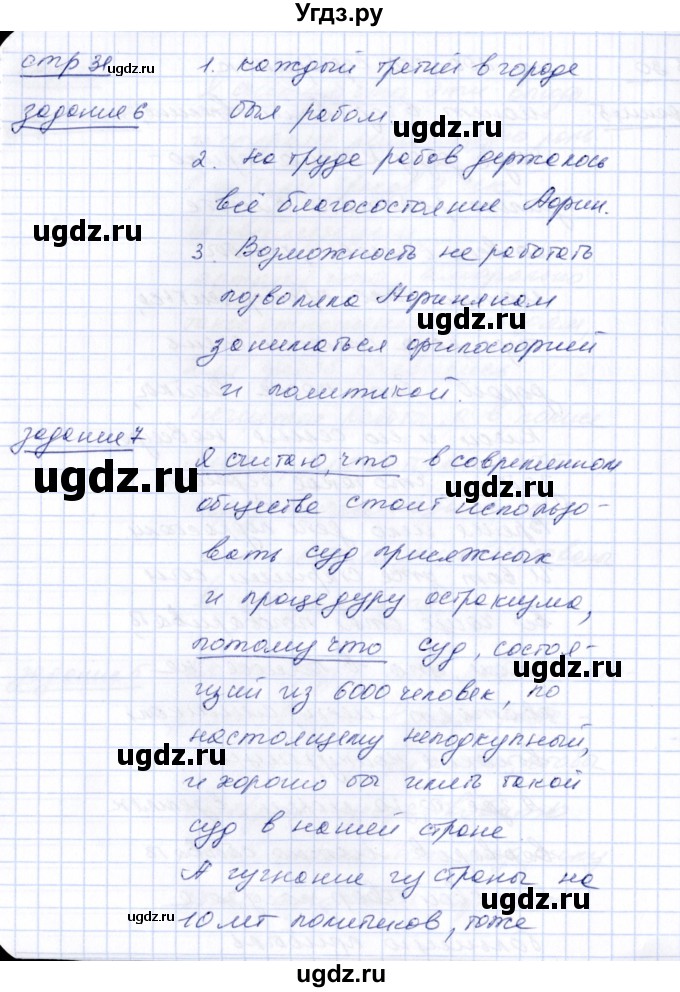 Угдз.ру
стр 31 1. каждый третий в городе
задание 6 был рабом.
2. на труде рабов держалось
всё благосостояние Афин.
3. Возможность не работать
позволяла Афинянам
заниматься философией
и политикой.
задание 7
Я считаю, что в современном
обществе стоит использо-
вать суд присяжных
и процедуру остракизма,
потому что суд, состоя-
щий из 6000 человек, по
настоящему неподкупный,
и хорошо бы иметь такой
суд в нашей стране.
А изгнание из страны на
10 лет политиков, тоже
ugdz.ru
ugdz.ru
ugdz.ru
ugdz.ru
ugdz.ru
ugdz.ru
ugdz.ru
ugdz.ru
ugdz.ru
ugdz.ru
ugdz.ru
ugdz.ru